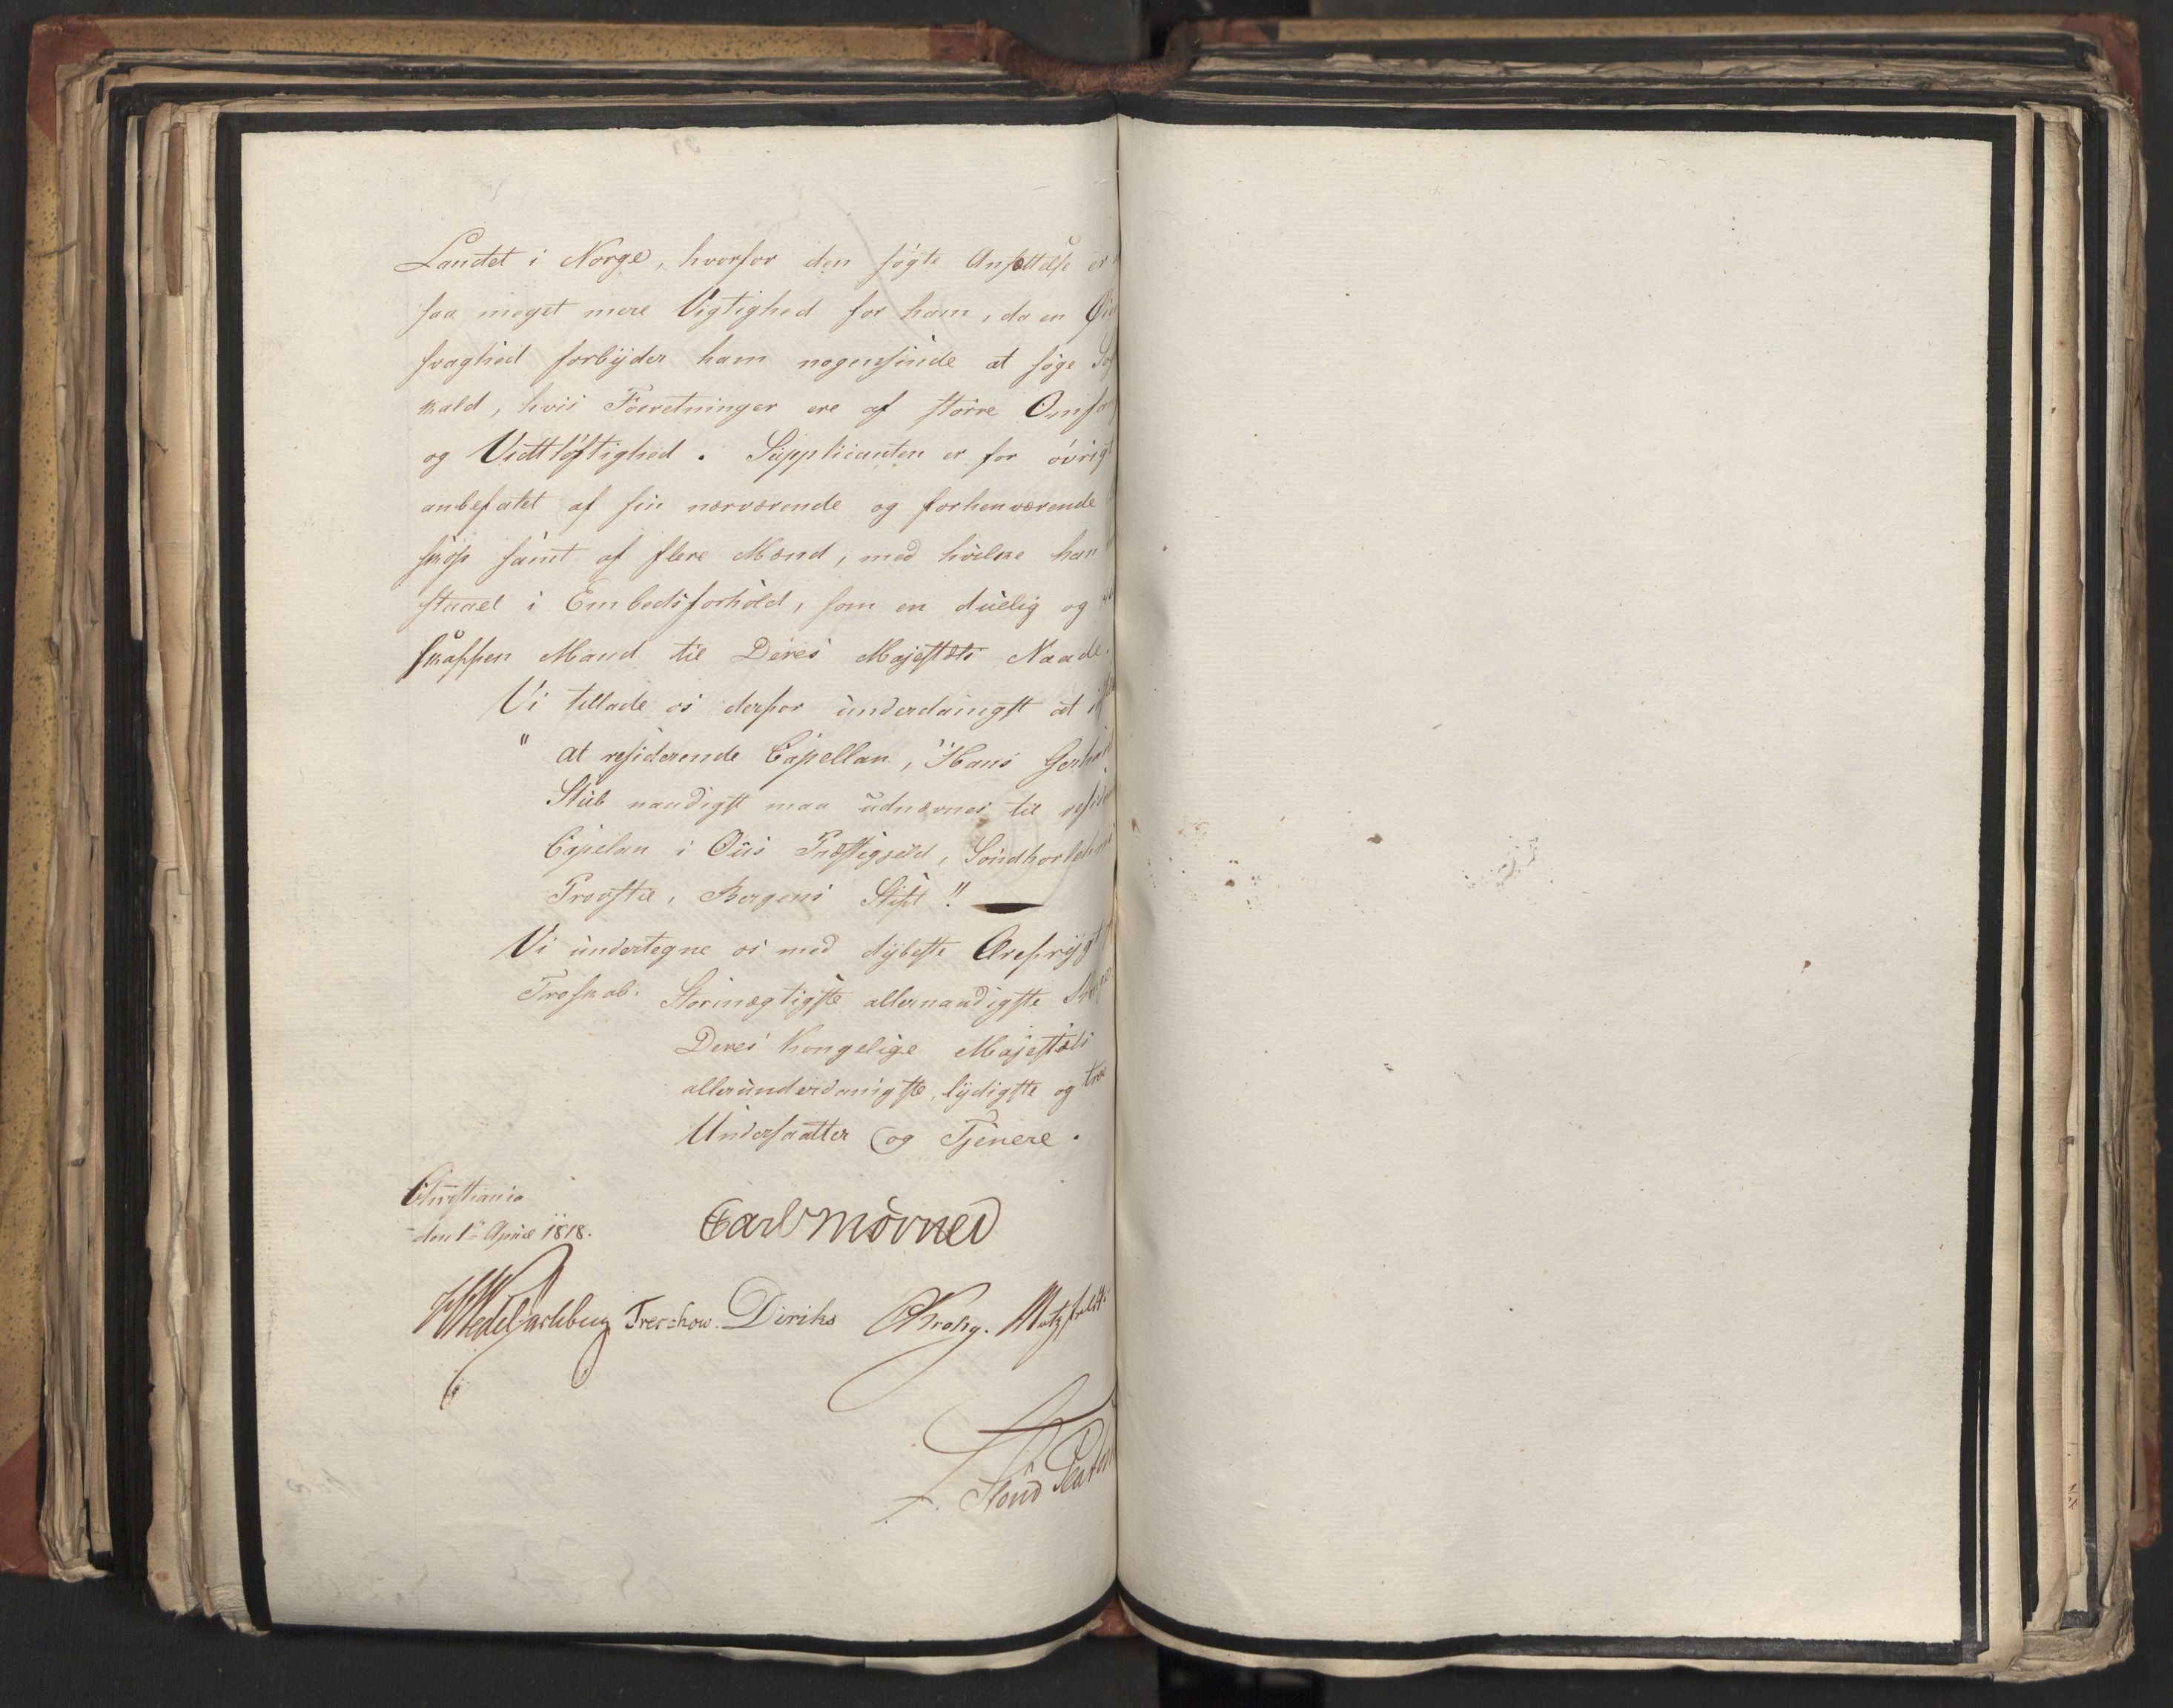 Landet i Norge, hvorfor den søgte Ansættelse er
saa meget mere Vigtighed for ham, da en
svaghed forbyder ham nogensinde at søge
kald, hvis Forretninger ere af større Omfan
og Vidtløftighed. Supplicanten er for øvrigt
anbefalet af sin nærværende og forhenværende
skop samt af flere Mænd, med hvilke han
staaet i Embedsforhold, som en duelig og
skaffen Mand til Deres Majestæts Naade.
Vi tillade os derfor underdanigst at
" at residerende Capellan, Hans Gerhar
Stub naadigst maa udnævnes til resider
Capelan i Ous Præstegjeld, Søndhorlehns
Provstie, Bergens Stift!!
Vi undertegne os med dybeste Ærefrygt
Troskab. Stormægtigste allernaadigste
Deres Kongelige Majestæts
allerunderdanigste, lydigste og troe
Undersaatter og Tjenere.
Christiania
den 1te April 1818.
Carl Mörner
HWedelJarlsberg Treschow. Diriks CKrohg. Motzfeldt